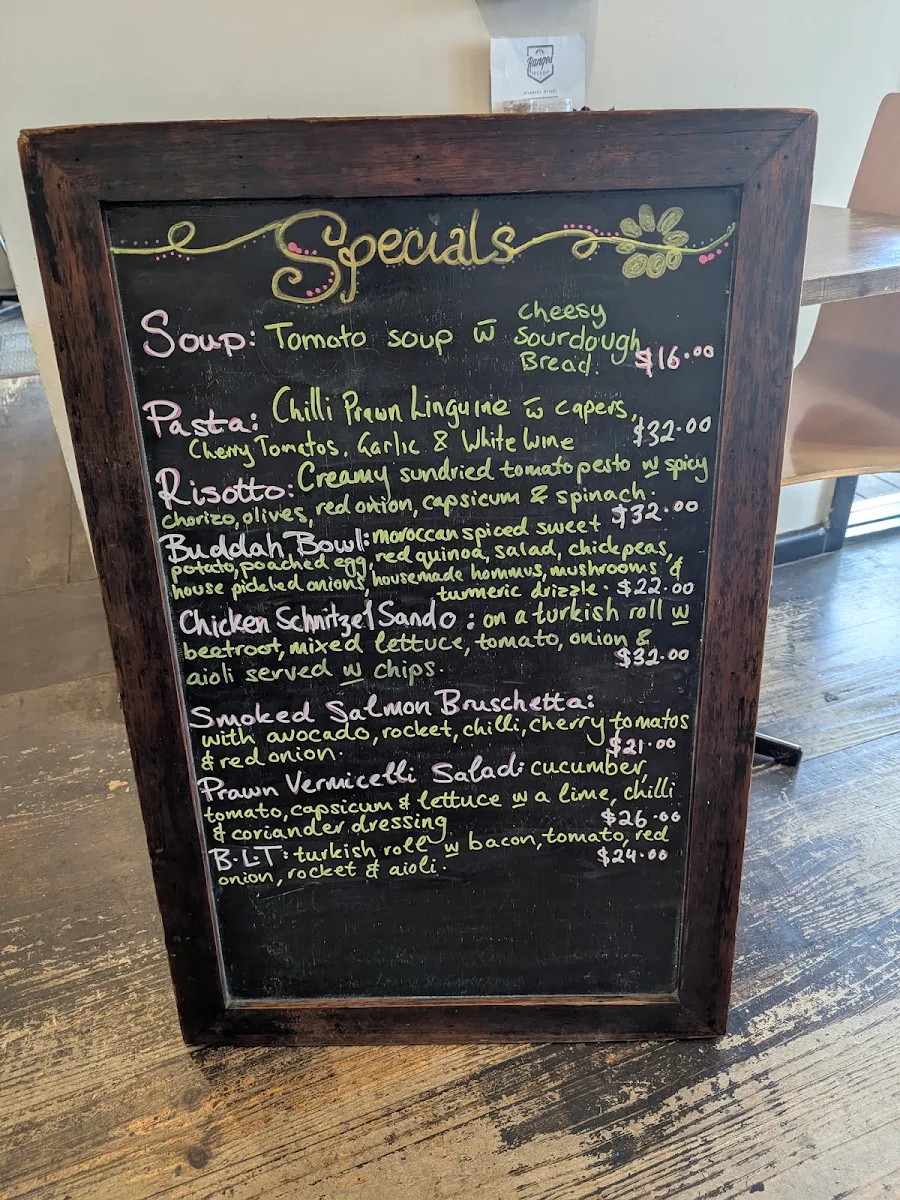 Ranges
Specials
Soup: Tomato soup w̄ cheesy
Sourdough
Bread. $16.00
Pasta: Chilli Prawn Linguine w̄ capers,
Cherry Tomatos, Garlic & White Wine $32.00
Risotto: Creamy sundried tomato pesto w spicy
chorizo, olives, red onion, capsicum & spinach. $32.00
Buddah Bowl: moroccan spiced sweet
potato, poached egg, red quinoa, salad, chickpeas,
house pickled onions, housemade hommus, mushrooms &
turmeric drizzle. $22.00
Chicken Schnitzel Sando: on a turkish roll w
beetroot, mixed lettuce, tomato, onion &
aioli served w chips. $32.00
Smoked Salmon Bruschetta:
with avocado, rocket, chilli, cherry tomatos
& red onion. $21.00
Prawn Vermicelli Salad: cucumber,
tomato, capsicum & lettuce w a lime, chilli
& coriander dressing $26.00
B.L.T: turkish roll w bacon, tomato, red
onion, rocket & aioli. $24.00